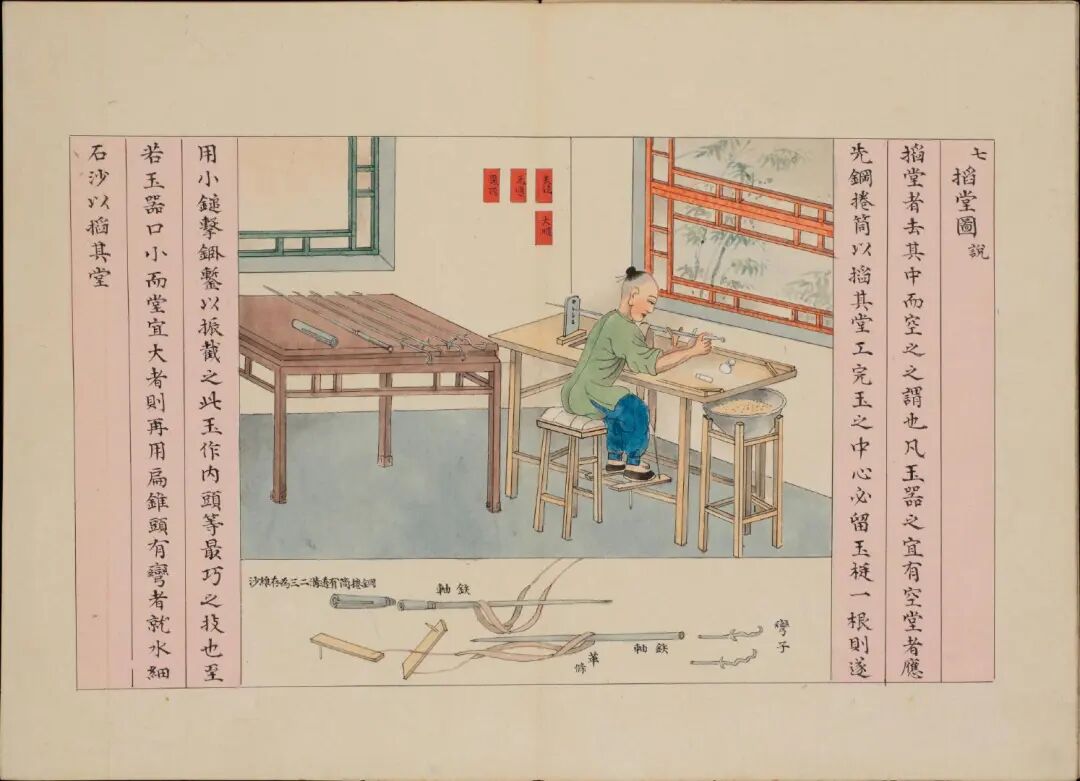 七
搯堂圖說
搯堂者去其中而空之之謂也凡玉器之宜有空堂者應
先鋼捲筒以搯其堂工完玉之中心必留玉梃一根則遂
用小鎚擊鋼鏨以振截之此玉作內頭等最巧之技也至
若玉器口小而堂宜大者則再用扁錐頭有彎者就水細
石沙以搯其堂
鋼捲筒有透溝二三為存沙
鉄軸
彎子
鉄軸
條